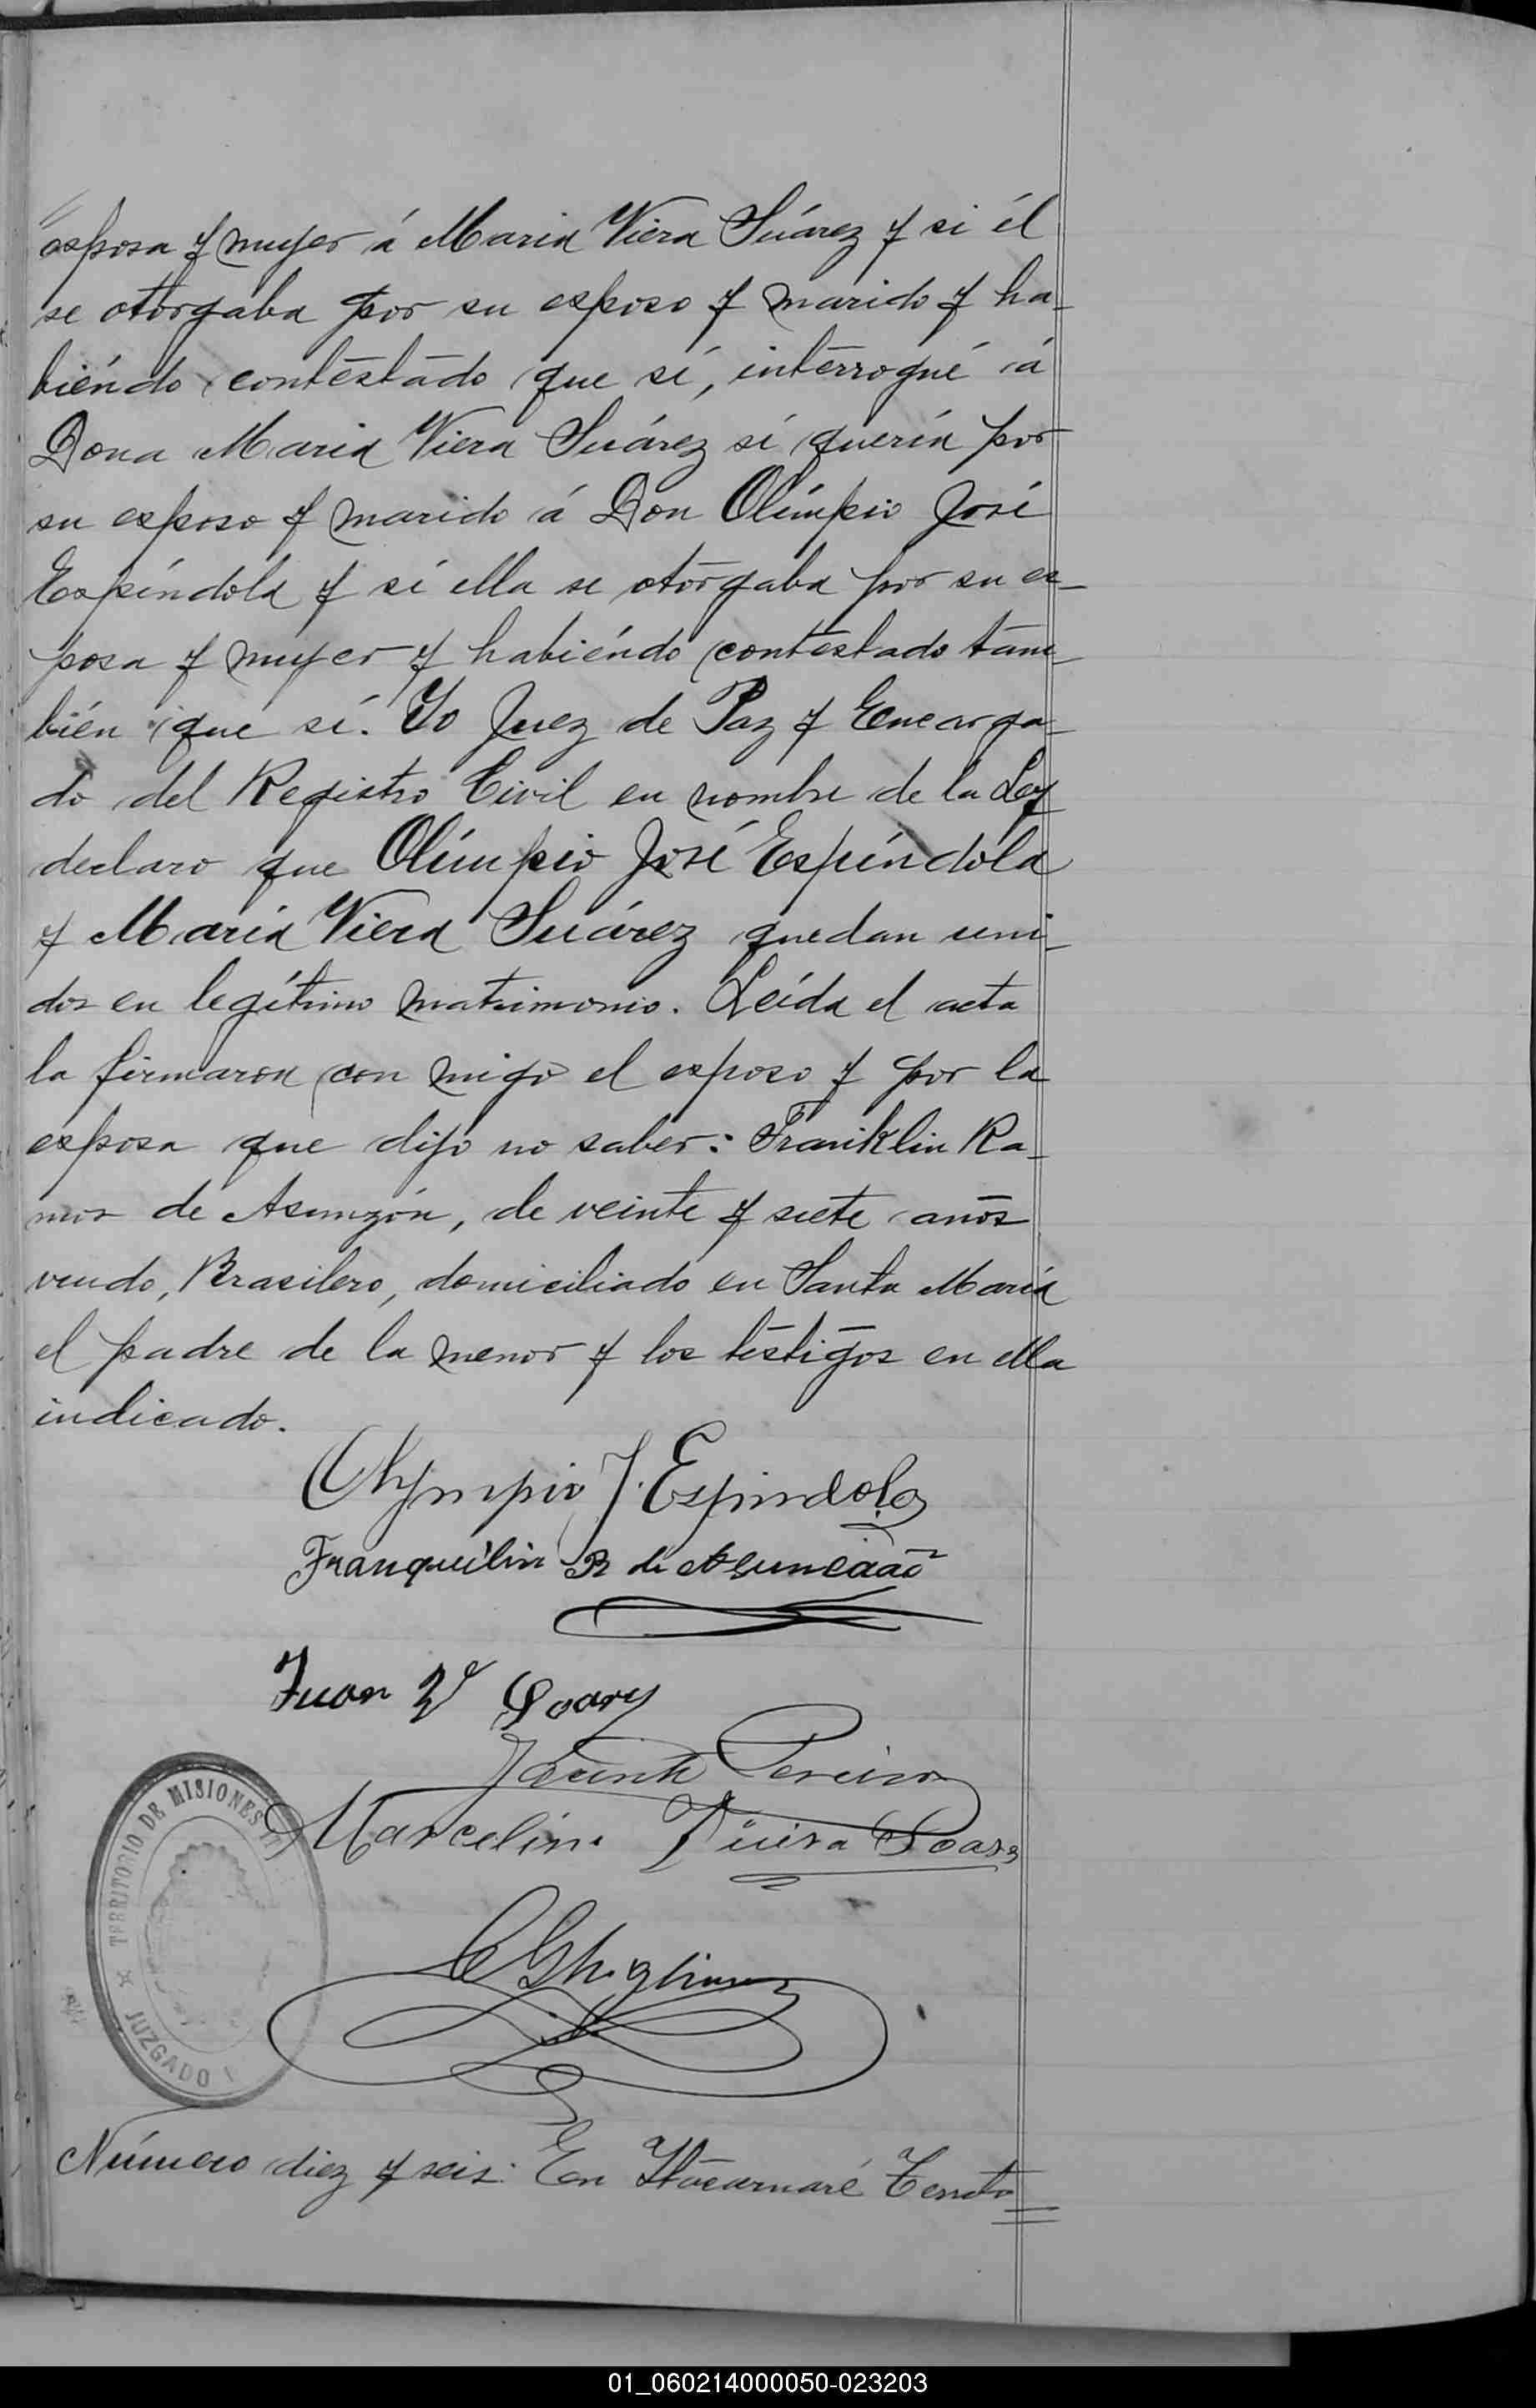 esposa y mujer á Maria Viera Suárez y si él
se otorgaba por su esposo y marido y ha-
biéndo contestado que sí, interrogué á
Dona Maria Viera Suárez si quería por
su esposo y marido á Don Olímpio José
Espíndola y si ella se otorgaba por su es-
posa y mujer y habiéndo contestado tam-
bién que sí. Yo Juez de Paz y Encarga-
do del Registro Civil en nombre de la Ley
declaro que Olímpio José Espíndola
y María Viera Suárez quedan uni-
dos en legítimo matrimonio. Leída el acta
la firmaron con migo el esposo y por la
esposa que dijo no saber: Franklin Ra-
mos de Asunzión, de veinte y siete años
viudo, Brasilero, domiciliado en Santa María
el padre de la menor y los testigos en ella
indicado.
Olympio J. Espindola
Franquilin R de Asuncaão
Juan Va Soary
Jacinto Pereira
Marcelino Vieira Soares
TERRITORIO DE MISIONES
JUZGADO
C Ghiglione
Número diez y seis: En Itacaruaré Territo
01_060214000050-023203